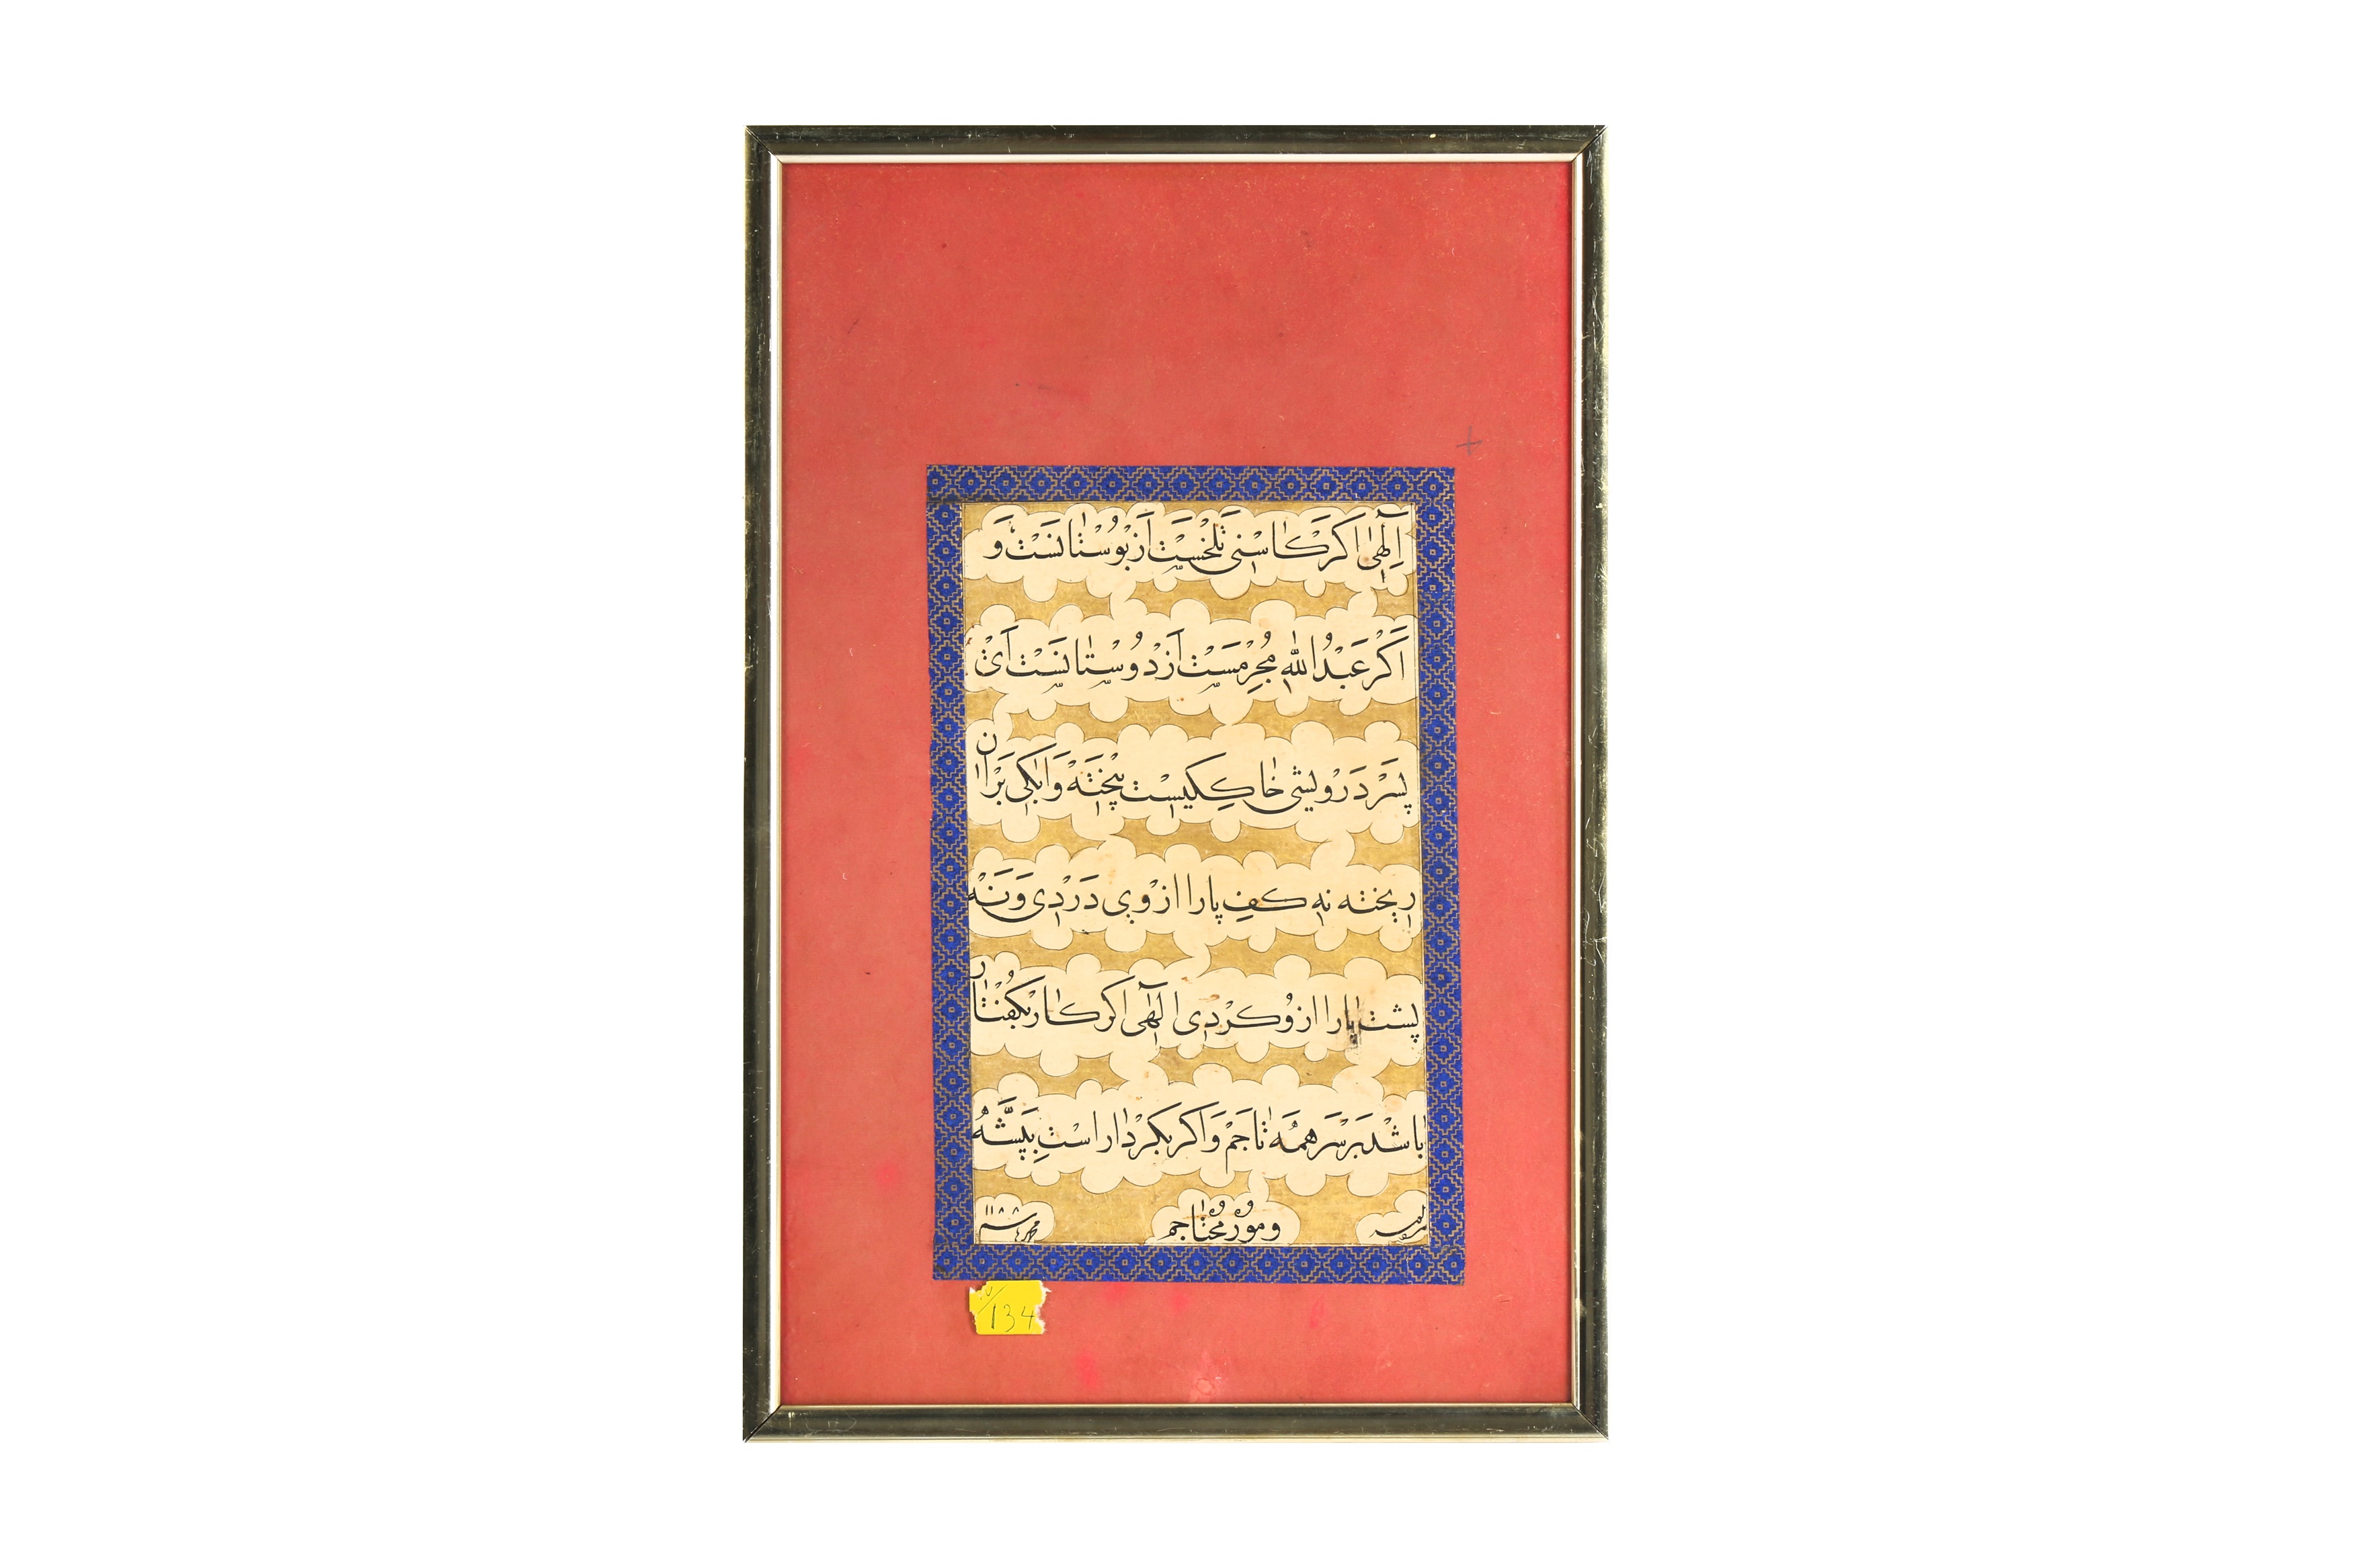 اِلٓهٰی اکَرْ کٰاسْنی تَلخسْت اَز بُوسْتٰانسَتْ وَ
اَکَرْ عَبْدُ اللّٰهِ مُجْرِمسَتْ اَزْ دُوسْتٰانسَتْ اَیْ
پِسَرْ دَرْویشی خٰاکِکیست بیْخْتَهْ وَ اٰبکی بَرْ اٰن
ریخته نه کفِ پا را ازْ وی دَرْدی وَ نَهْ
پشت پا را از وُ کرْدی الٓهٰی اکر کٰار بکفُتٰار
باشد بَر سَر همهٔ تٰاجَمْ وَ اکر بکرْدٰار اسْتِ بپَشّهٔ
و مُوُر محُتٰاجم
۱۱۸۸
134